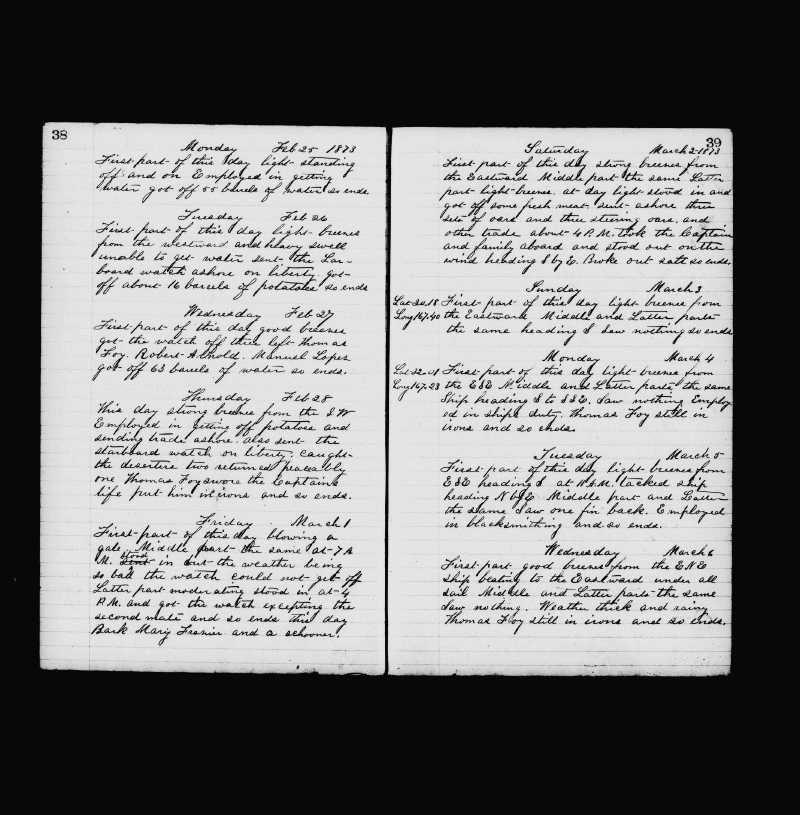 38
Monday Feb 25 1873
First part of this day light standing
off and on Employed in getting
water got off 55 barels of water so ends
Tuesday Feb 26
First part of this day light breeses
from the westward and heavy swell
unable to get water sent the Lar-
board watch ashore on liberty got
off about 16 barels of potatoes so ends
Wednesday Feb 27
First part of this day good breeses
got the watch off three left Thomas
Foy. Robert Arnold. Manuel Lopez
got off 63 barels of water so ends.
Thursday Feb 28
This day strong breese from the S W
Employed in getting off potatoes and
sending trade ashore. also sent the
starboard watch on liberty. caught
the deserters two returned peacably
one Thomas Foy swore the Captains
life put him in irons and so ends.
Friday March 1
First part of this day blowing a
gale. Middle part the same at 7 A
M. stood in but the weather being
so bad the watch could not get off
Latter part moderating stood in at 4
P.M. and got the watch excepting the
second mate and so ends this day
Bark Mary Frasier and a schooner.
39
Saturday March 2 1873
First part of this day strong breeses from
the Eastward Middle part the same Latter
part light breese. at day light stood in and
got off some fresh meat. sent ashore three
sets of oars and three steering oars. and
other trade about 4 P.M. took the Captain
and family aboard and stood out on the
wind heading S by E. Broke out salt so ends.
Sunday March 3
Lat 30.18 First part of this day light breese from
Long 167.40 the Eastward Middle and Latter parts
the same heading S Saw nothing so ends
Monday March 4
Lat 32.40 First part of this day light breeses from
Long 167.23 the ESE Middle and Latter parts the same
Ship heading S to SSE. Saw nothing Employ-
ed in ships duty. Thomas Foy still in
irons and so ends.
Tuesday March 5
First part of this day light breeses from
ESE heading S at A.M. tacked ship
heading N by E Middle part and Latter
the same Saw one fin back. Employed
in blacksmithing and so ends.
Wednesday March 6
First part good breeses from the ENE
ship beating to the Eastward under all
sail Middle and Latter parts the same
Saw nothing. Weather thick and rainy
Thomas Foy still in irons and so ends.